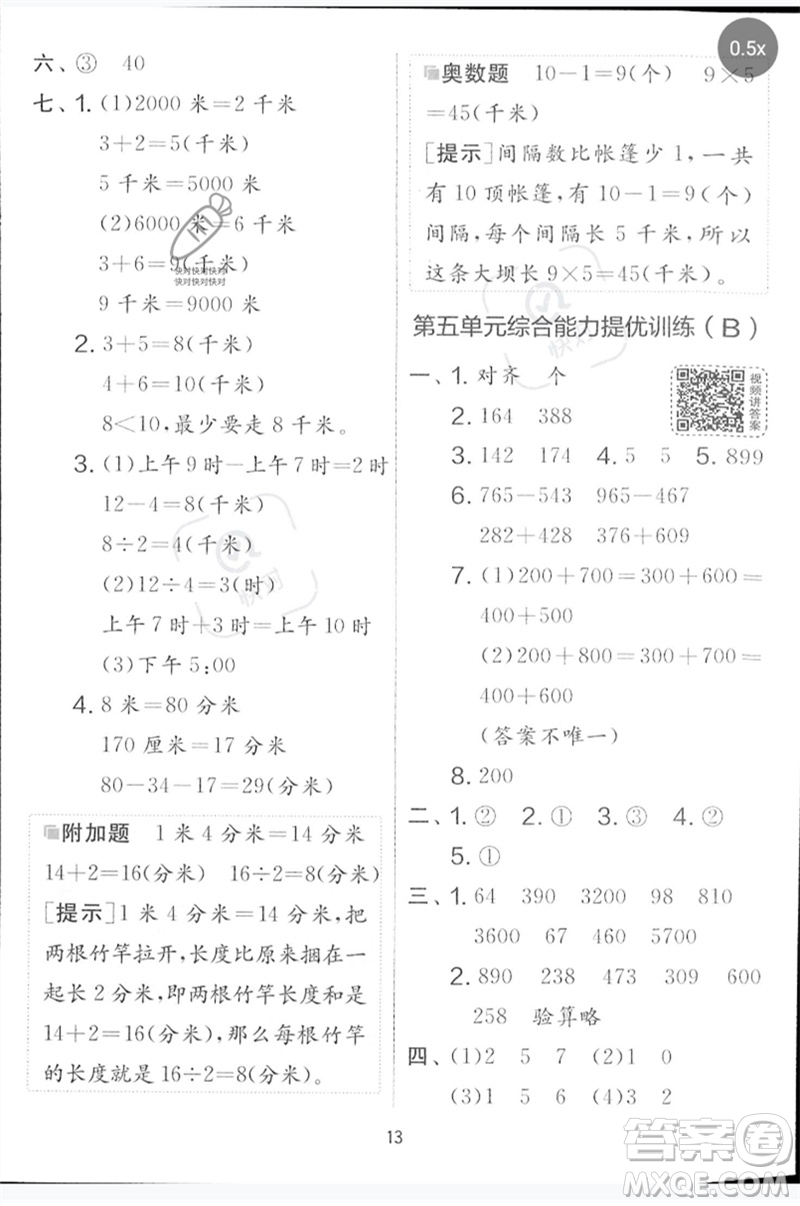 0.5x
六、③ 40
七、1. (1)2000 米=2 千米
3+2=5(千米)
5 千米=5000 米
(2)6000 米=6 千米
3+6=9(千米)
快对快对快对
快对快对快对
9 千米=9000 米
2. 3+5=8(千米)
4+6=10(千米)
8<10,最少要走 8 千米。
3. (1)上午 9 时-上午 7 时=2 时
12-4=8(千米)
8÷2=4(千米)
(2)12÷4=3(时)
上午 7 时+3 时=上午 10 时
(3)下午 5:00
4. 8 米=80 分米
170 厘米=17 分米
80-34-17=29(分米)
附加题 1 米 4 分米=14 分米
14+2=16(分米) 16÷2=8(分米)
[提示]1 米 4 分米=14 分米,把
两根竹竿拉开,长度比原来捆在一
起长 2 分米,即两根竹竿长度和是
14+2=16(分米),那么每根竹竿
的长度就是 16÷2=8(分米)。
奥数题 10-1=9(个) 9×5
=45(千米)
[提示]间隔数比帐篷少 1,一共
有 10 顶帐篷,有 10-1=9(个)
间隔,每个间隔长 5 千米,所以
这条大坝长 9×5=45(千米)。
第五单元综合能力提优训练(B)
一、1. 对齐 个
视频讲答案
2. 164 388
3. 142 174 4. 5 5 5. 899
6. 765-543 965-467
282+428 376+409
7. (1)200+700=300+600=
400+500
(2)200+800=300+700=
400+600
(答案不唯一)
8. 200
二、1. ② 2. ① 3. ③ 4. ②
5. ①
三、1. 64 390 3200 98 810
3600 67 460 5700
2. 890 238 473 309 600
258 验算略
四、(1)2 5 7 (2)1 0
(3)9 5 6 (4)3 2
13
快对
快对
答案卷
MXQE.COM